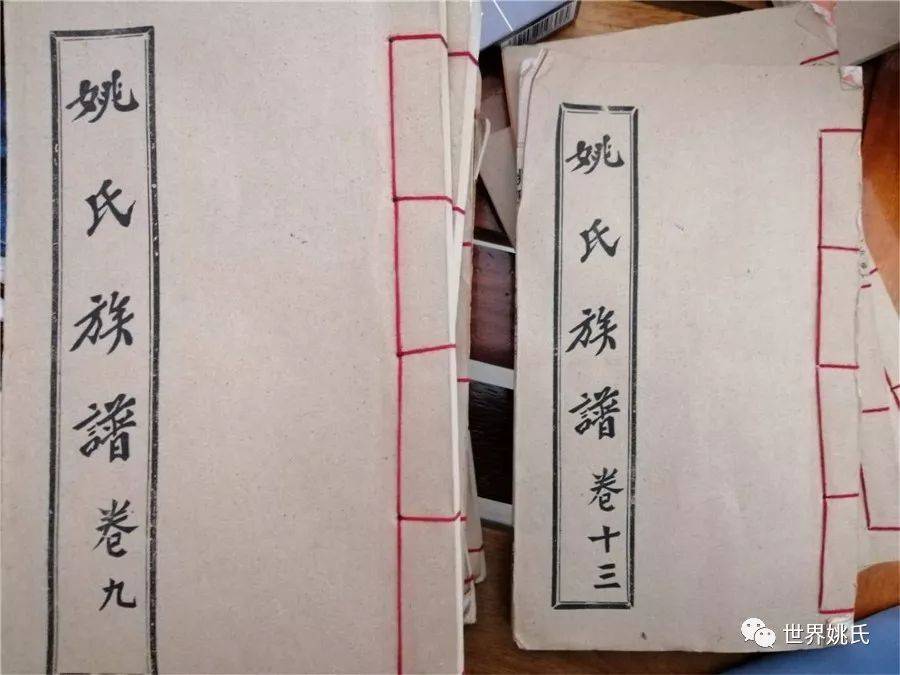 姚氏族譜卷九
姚氏族譜卷十三
世界姚氏